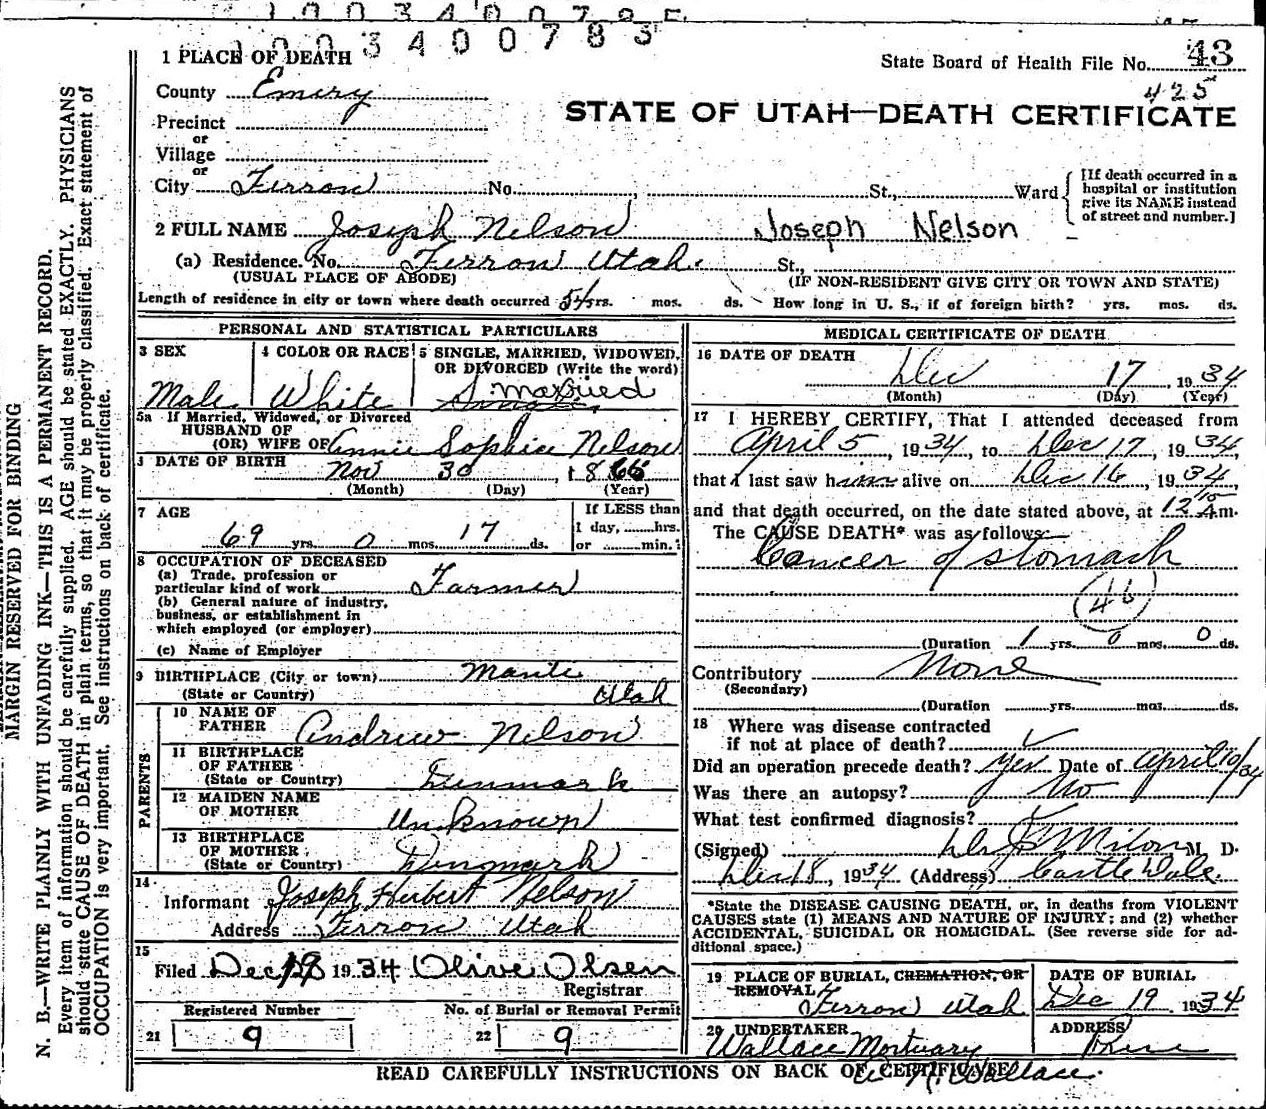 1003400785
1003400783
1 PLACE OF DEATH
State Board of Health File No. 43
425
STATE OF UTAH—DEATH CERTIFICATE
County Emery
Precinct
or
Village
or
City Ferron No. , St., Ward
[If death occurred in a
hospital or institution
give its NAME instead
of street and number.]
2 FULL NAME Joseph Nelson Joseph Nelson
(a) Residence. No. Ferron Utah. St.,
(USUAL PLACE OF ABODE) (IF NON-RESIDENT GIVE CITY OR TOWN AND STATE)
Length of residence in city or town where death occurred 54 yrs. mos. ds. How long in U. S., if of foreign birth? yrs. mos. ds.
PERSONAL AND STATISTICAL PARTICULARS
3 SEX 4 COLOR OR RACE 5 SINGLE, MARRIED, WIDOWED,
OR DIVORCED (Write the word)
Married
Male White Single
5a If Married, Widowed, or Divorced
HUSBAND OF
(OR) WIFE OF Annie Sophia Nelson
DATE OF BIRTH Nov 30, 1866
(Month) (Day) (Year)
7 AGE If LESS than
1 day, hrs.
69 yrs. 0 mos. 17 ds. or min.
8 OCCUPATION OF DECEASED
(a) Trade, profession or
particular kind of work Farmer
(b) General nature of industry,
business, or establishment in
which employed (or employer)
(c) Name of Employer
9 BIRTHPLACE (City or town) Manti
(State or Country) Utah
PARENTS
10 NAME OF
FATHER Andrew Nelson
11 BIRTHPLACE
OF FATHER
(State or Country) Denmark
12 MAIDEN NAME
OF MOTHER Unknown
13 BIRTHPLACE
OF MOTHER
(State or Country) Denmark
14
Informant Joseph Herbert Nelson
Address Ferron Utah
15
Filed Dec 19 1934 Olive Olsen
Registrar
Registered Number No. of Burial or Removal Permit
21 9 22 9
MEDICAL CERTIFICATE OF DEATH
16 DATE OF DEATH
Dec 17, 1934
(Month) (Day) (Year)
17 I HEREBY CERTIFY, That I attended deceased from
April 5, 1934, to Dec 17, 1934,
that I last saw him alive on Dec 16, 1934
and that death occurred, on the date stated above, at 12 15 Am.
The CAUSE DEATH* was as follows:
Cancer of stomach
46
(Duration 1 yrs. 0 mos. 0 ds.
Contributory None
(Secondary)
(Duration yrs. mos. ds.
18 Where was disease contracted
if not at place of death?
Did an operation precede death? Yes Date of April 10/34
Was there an autopsy? No
What test confirmed diagnosis?
(Signed) M. D.
Dec 18, 1934 (Address) Castle Dale
*State the DISEASE CAUSING DEATH, or, in deaths from VIOLENT
CAUSES state (1) MEANS AND NATURE OF INJURY; and (2) whether
ACCIDENTAL, SUICIDAL OR HOMICIDAL. (See reverse side for ad-
ditional space.)
19 PLACE OF BURIAL, CREMATION, OR
REMOVAL DATE OF BURIAL
Ferron Utah Dec 19 1934
20 UNDERTAKER ADDRESS
Wallace Mortuary Price
W. N. Wallace.
READ CAREFULLY INSTRUCTIONS ON BACK OF CERTIFICATE
MARGIN RESERVED FOR BINDING
N. B.—WRITE PLAINLY WITH UNFADING INK—THIS IS A PERMANENT RECORD.
Every item of information should be carefully supplied. AGE should be stated EXACTLY. PHYSICIANS
should state CAUSE OF DEATH in plain terms, so that it may be properly classified. Exact statement of
OCCUPATION is very important. See instructions on back of certificate.